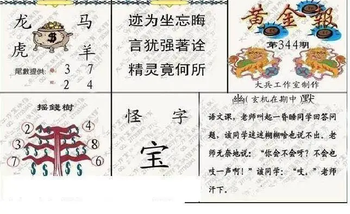 龙 马
虎 羊
尾數提供: 3 7
2 4
迹为坐忘晦
言犹强著诠
精灵竟何所
黄金報
第344期
大兵工作室制作
摇錢樹
4 2
6 7
8 1
怪 字
宝
玄机在期中
语文课，老师叫起一昏睡同学回答问
题，该同学迷迷糊糊啥也说不出。老
师无奈地说：“你会不会呀？不会也
吱一声啊！”该同学：“吱。”老师
汗下。